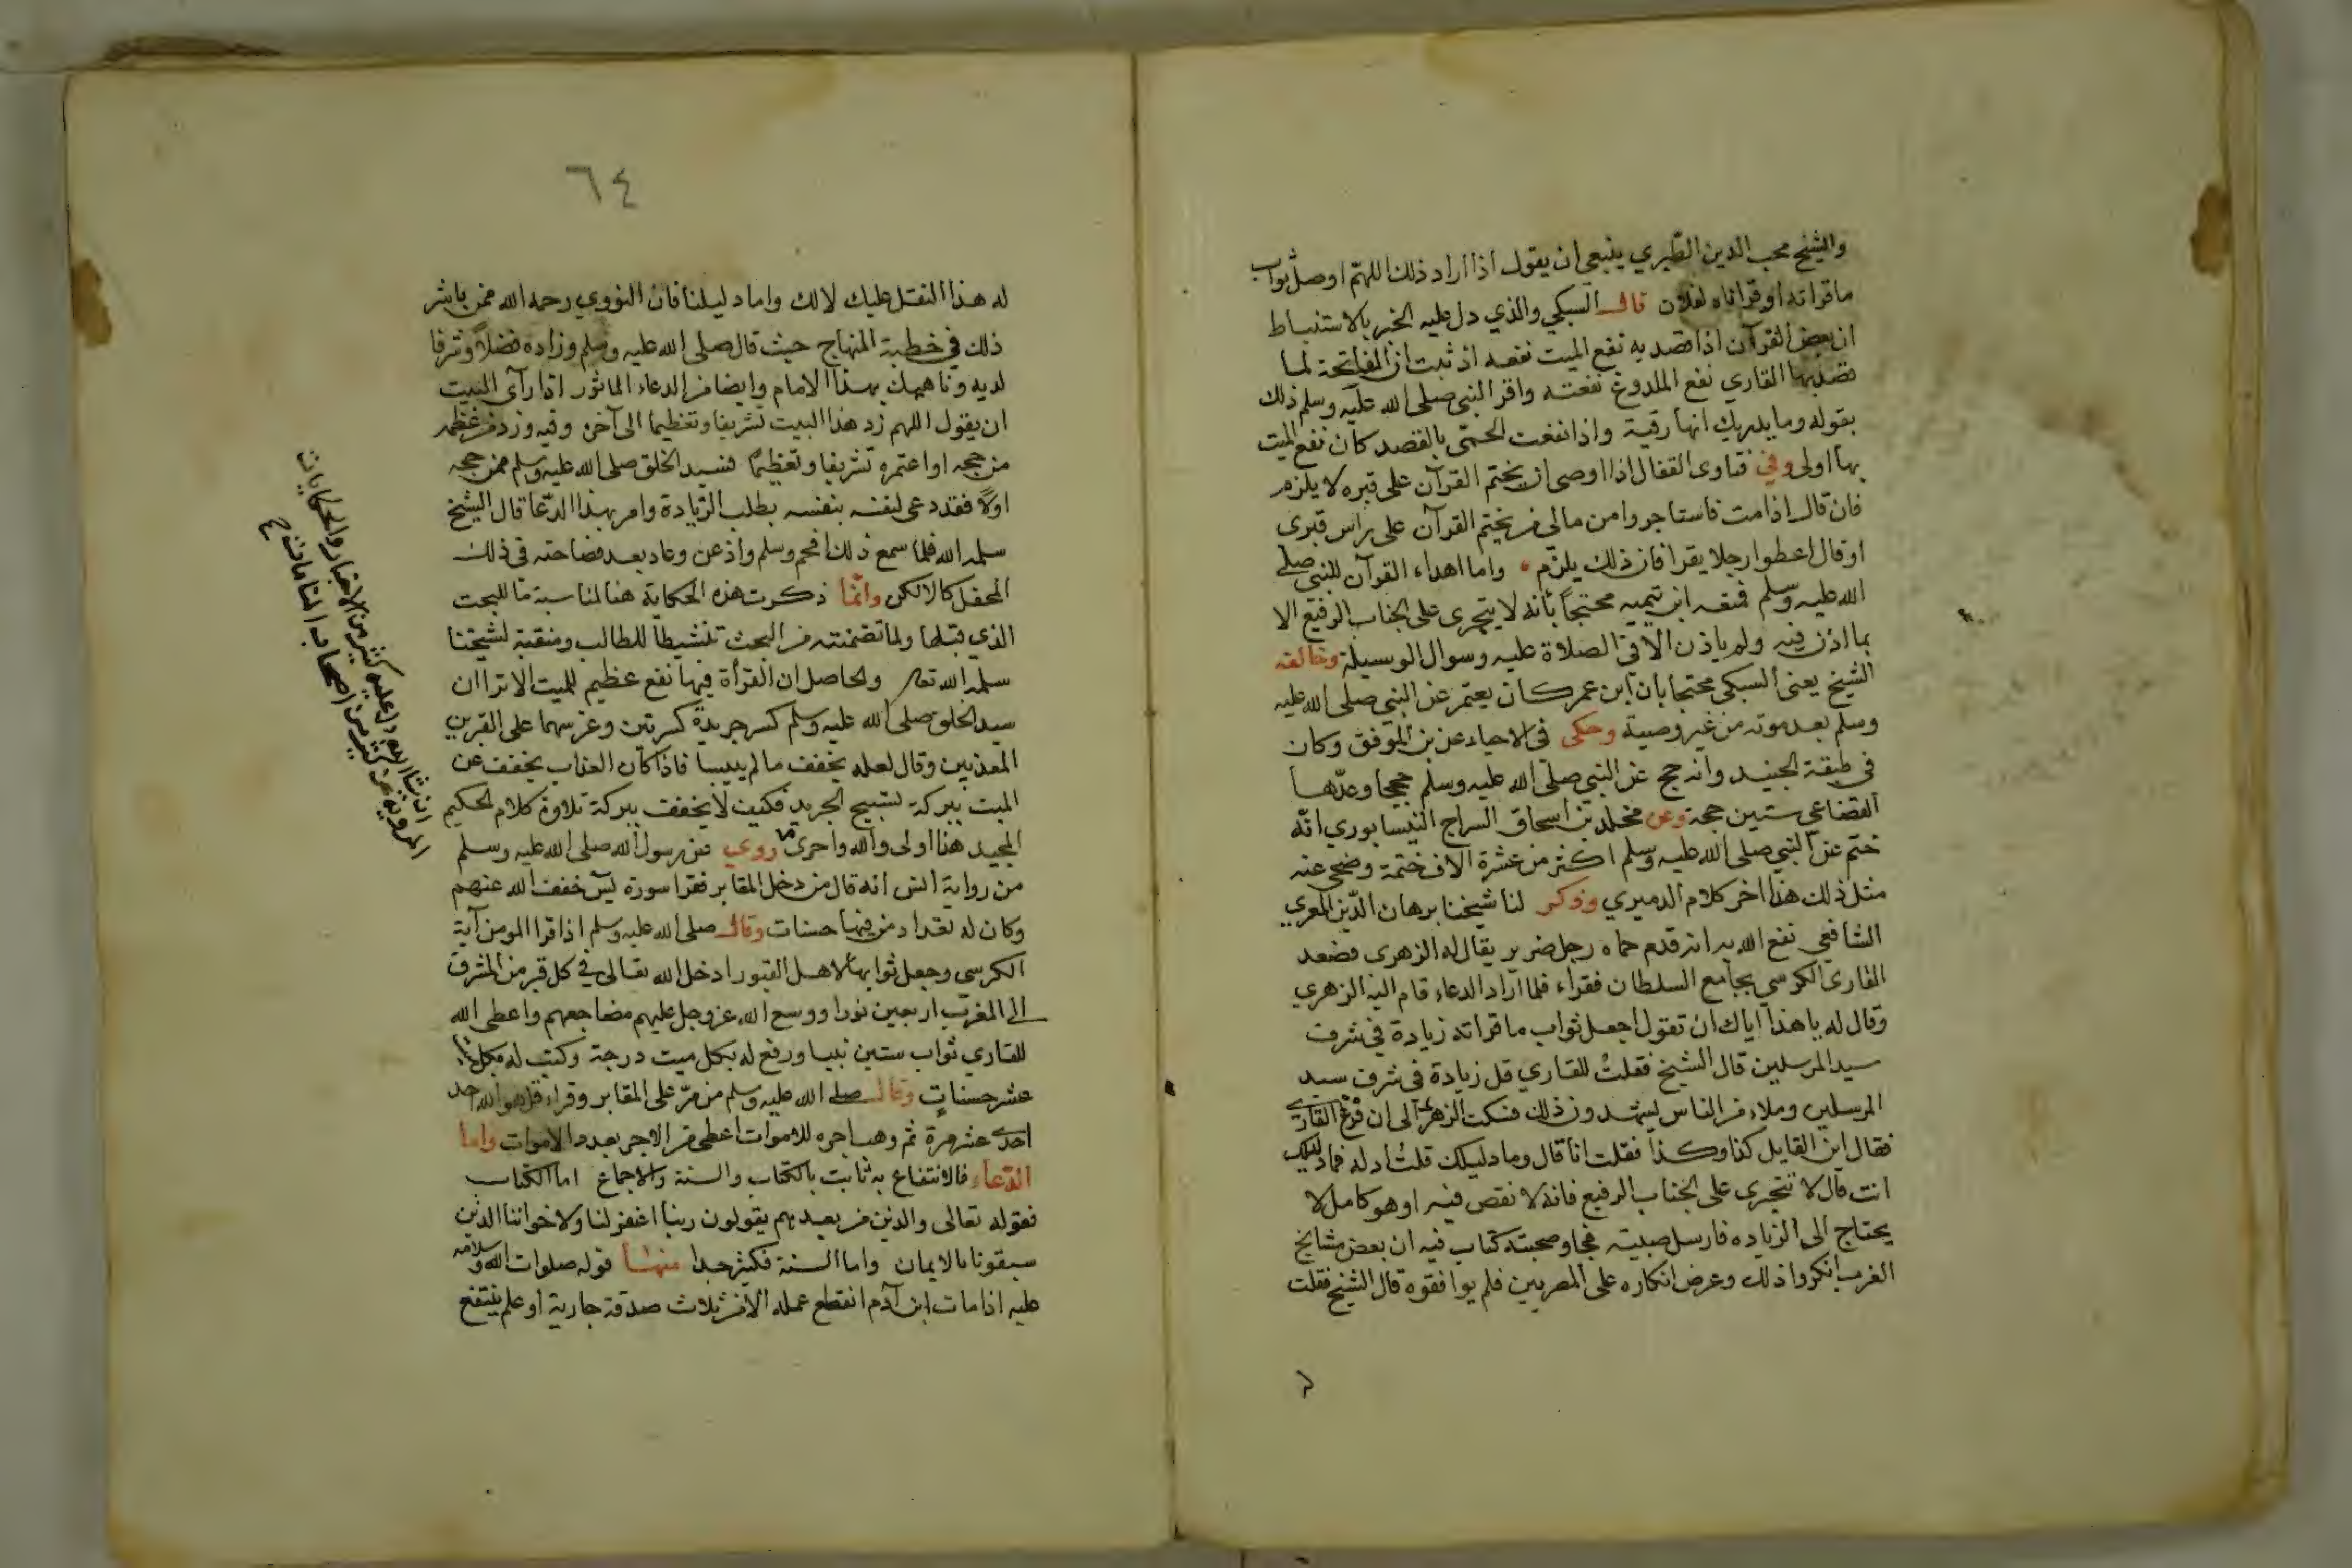 والشيخ محب الدين الطبري ينبغي ان يقول اذا اراد ذلك اللهم اوصل ثواب
ما قراته او قراناه لفلان قال السبكي والذي دل عليه الخبر بالاستنباط
ان بعض القرآن اذا قصد به نفع الميت نفعه اذ ثبت ان الفاتحة لما
قصد بها القاري نفع الملدوغ نفعته واقر النبي صلى الله عليه وسلم ذلك
بقوله وما يدريك انها رقية واذا نفعت الحمى بالقصد كان نفع الميت
بها اولى وفي فتاوى القفال اذا اوصى ان يختم القرآن على قبره لا يلزم
فان قال اذا مت فاستاجروا من مالي من يختم القرآن على راس قبري
او قال اعطوا رجلا يقرا فان ذلك يلزم واما اهداء القرآن للنبي صلى
الله عليه وسلم فمنعه ابن تيميه محتجا بأنه لا يتجرى على الجناب الرفيع الا
بما اذن فيه ولم ياذن الا في الصلاة عليه وسوال الوسيلة وخالفه
الشيخ يعنى السبكي محتجا بان ابن عمر كان يعتمر عن النبي صلى الله عليه
وسلم بعد موته من غير وصية وحكى في الاحياء عن بن الموفق وكان
في طبقة الجنيد وانه حج عن النبي صلى الله عليه وسلم حججا وعدها
القضاعي ستين حجة وعن محمد بن اسحاق السراج النيسابوري انه
ختم عن النبي صلى الله عليه وسلم اكثر من عشرة الاف ختمة وضحى عنه
مثل ذلك هذا اخر كلام الدميري وذكر لنا شيخنا برهان الدين المعري
الشافعي نفع الله به انه قدم حماه رجل ضرير يقال له الزهري فصعد
القارى الكرسي بجامع السلطان فقراء فلما اراد الدعاء قام اليه الزهري
وقال له يا هذا اياك ان تقول اجعل ثواب ما قراته زيادة في شرف
سيد المرسلين قال الشيخ فقلت للقاري قل زيادة في شرف سيد
المرسلين وملاء من الناس يشهدون ذلك فسكت الزهري الى ان فرغ القارى
فقال اين القايل كذا وكذا فقلت انا قال وما دليلك قلت ادله فما دليلك
انت قال لا تتجرى على الجناب الرفيع فانه لا نقص فيه او هو كامل لا
يحتاج الى الزياده فارسل صبيته فجاوصحبته كتاب فيه ان بعض مشايخ
الغرب انكروا ذلك وعرض انكاره على المصريين فلم يوافقوه قال الشيخ فقلت
٦٤
له هذا النقل عليك لا لك واما دليلنا فان النووي رحمه الله ممن باشر
ذلك في خطبة المنهاج حيث قال صلى الله عليه وسلم وزاده فضلا وشرفا
لديه وناهيك بهذا الامام وايضا من الدعاء الماثور اذا رآى البيت
ان يقول اللهم زد هذا البيت تشريفا وتعظيما الى آخره وفيه وزد من عظمه
من حجه او اعتمره تشريفا وتعظيما فسيد الخلق صلى الله عليه وسلم ممن حجه
اولا فقد دعى لنفسه بنفسه بطلب الزيادة وامر بهذا الدعا قال الشيخ
سلمه الله فلما سمع ذلك افحم وسلم واذعن وعاد بعد فصاحته في ذلك
المحفل كالالكن وانما ذكرت هذه الحكاية هنا لمناسبة ما للبحث
الذي قبلها ولما تضمنته من البحث تنشيطا للطالب ومنقبة لشيخنا
سلمه الله تعا والحاصل ان القرأة فيها نفع عظيم للميت الا ترا ان
سيد الخلق صلى الله عليه وسلم كسر جريدة كسرتين وغرسهما على القبرين
المعذبين وقال لعله يخفف ما لم ييبسا فاذا كان العذاب يخفف عن
الميت ببركة تسبيح الجريد فكيف لا يخفف ببركة تلاوة كلام الحكيم
المجيد هنا اولى والله واحرى روي عن رسول الله صلى الله عليه وسلم
من رواية انس انه قال من دخل المقابر فقرا سورة يس خفف الله عنهم
وكان له بعدد من فيها حسنات وقال صلى الله عليه وسلم اذا قرا المومن آية
الكرسي وجعل ثوابها لاهل القبور ادخل الله تعالى في كل قبر من المشرق
الى المغرب اربعين نورا ووسع الله عز وجل عليهم مضاجعهم واعطى الله
للقاري ثواب ستين نبيا ورفع له بكل ميت درجة وكتب له بكل
عشر حسنات وقال صلى الله عليه وسلم من مر على المقابر وقراء قل هو الله احد
احدى عشر مرة ثم وهب اجره للاموات اعطى من الاجر بعدد الاموات واما
الدعاء فالانتفاع به ثابت بالكتاب والسنة والاجماع اما الكتاب
فقوله تعالى والذين من بعدهم يقولون ربنا اغفر لنا ولاخواننا الذين
سبقونا بالايمان واما السنة فكثير جدا منها قوله صلوات الله وسلامه
عليه اذا مات ابن آدم انقطع عمله الا من ثلاث صدقة جارية او علم ينتفع
كثير من الاخبار والحكايات
المروية عن كثير من اصحاب المنامات